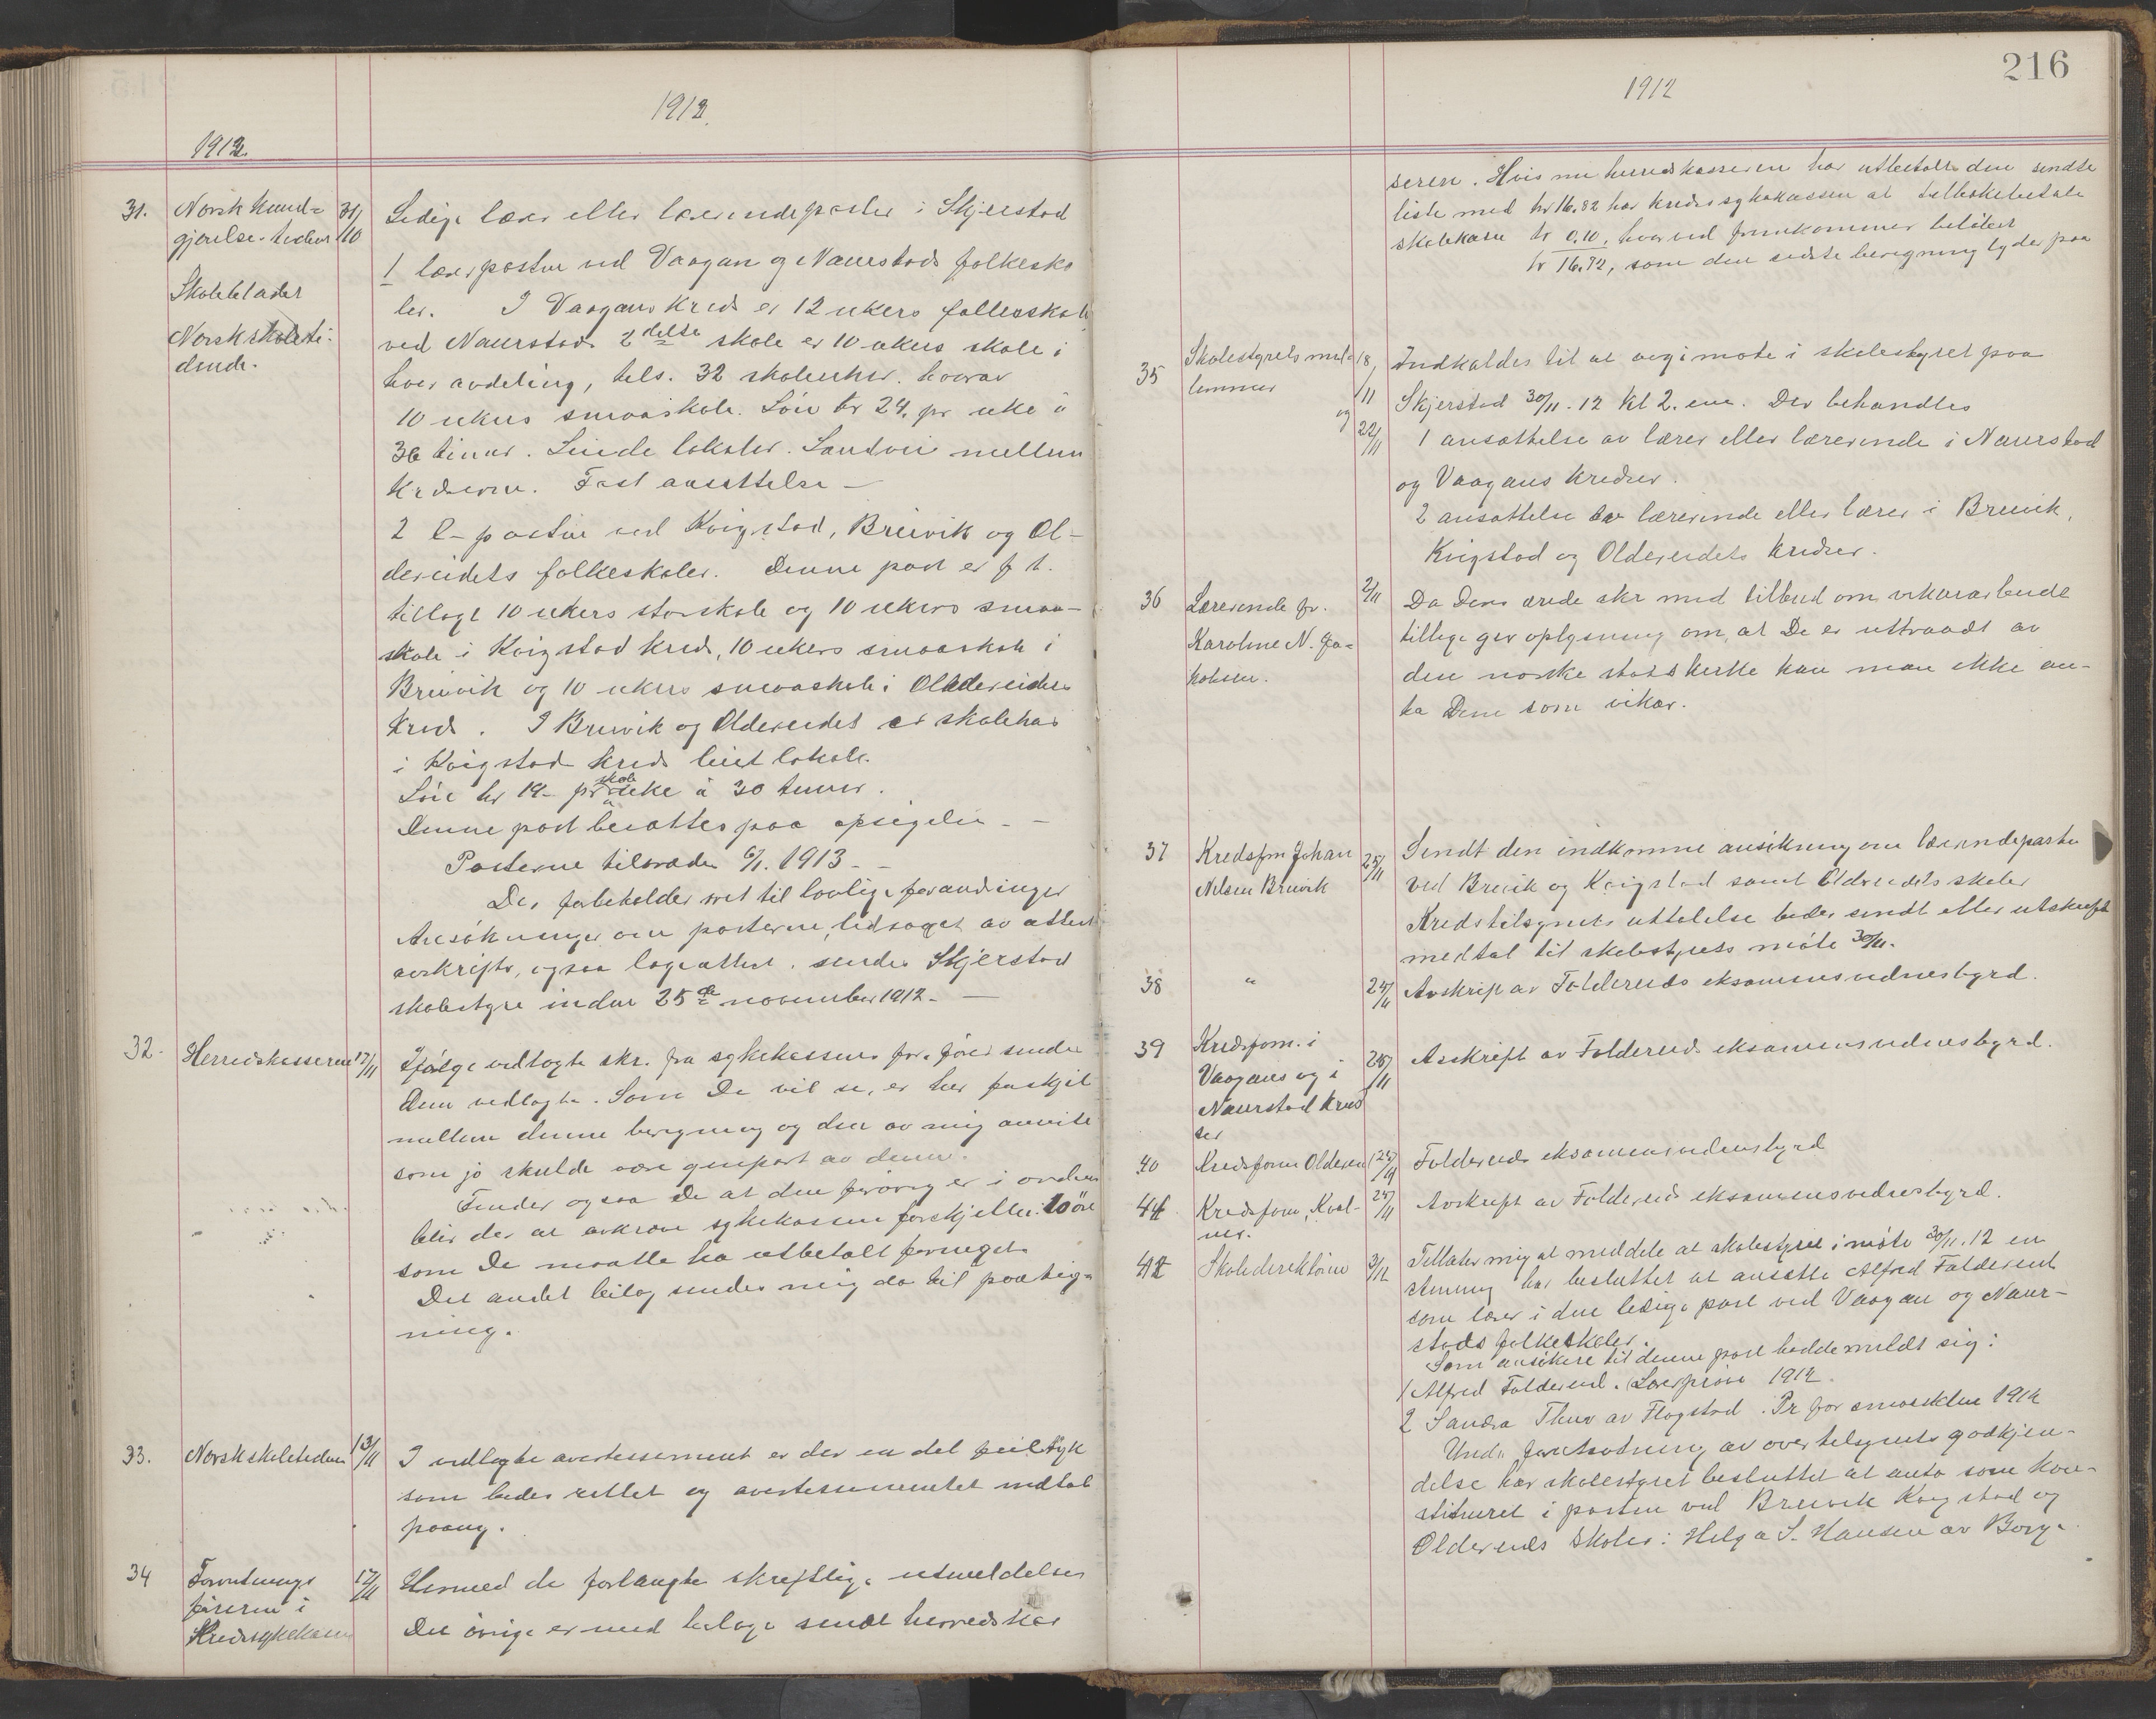 1912.
1912.
31.
Norsk kund-
gjørelse-tidene
31/10
Skolebladet
Norsk skoleti-
dende.
Ledige lærer eller lærerindeposter i Skjerstad
1 lærerposten ved Vaagan og Naurstads folkesko
ler. I Vaagans kreds er 12 ukers fellesskole
ved Naurstads 2 delte skole er 10 ukers skole i
hver avdeling, tils. 32 skoleuker. hvorav
10 ukers smaaskole. Løn kr 24. pr uke à
36 timer. Leiede lokaler. Landvei mellem
kredserne. Fast ansættelse –
2 l-posten ved Kvigstad, Breivik og Ol-
dereidets folkeskoler. Denne post er f t.
tillagt 10 ukers storskole og 10 ukers smaa-
skole i Kvigstad kreds, 10 ukers smaaskole i
Breivik og 10 ukers smaaskole i Oldereidets
kreds. I Breivik og Oldereidet er skolehus
i Kvigstad kreds leiet lokale.
Løn kr 19- pr skoleuke à 30 timer.
Denne post besættes paa opsigelse – –
Posterne tiltrædes 6/1. 1913 – –
Der forbeholdes ret til lovlige forandringer
Ansøkninger om posterne, ledsaget av attest
avskrifter, ogsaa lægeattest, sendes Skjerstad
skolestyre inden 25de november 1912 – –
32.
Herredskasseren
17/11
Ifølge vedlagte skr. fra sykekassens forr.fører sendes
Dem vedlagte. Som De vil se, er her forskjel
mellem denne beregning og den av mig anviste
som jo skulde være genpart av denne.
Finder ogsaa De at den forøvrig er i orden
blir der at avkræve sykekassen forskjellen 10 øre
som De maatte ha utbetalt formeget.
Det andet bilag sendes mig da til paateg-
ning.
33.
Norsk skoletidende
13/11
I vedlagte avertissement er der en del feiltryk
som bedes rettet og avertissementet indtat
paany.
34
Forretnings
føreren i
Kredssykekassen
17/11
Hermed de forlangte skriftlige utmeldelser
Det øvrige er med bilag sendt herredskas
216
1912
seren. Hvis nu herredskasseren har utbetalt den sendte
liste med kr 16.82 har kredssykekassen at tilbakebetale
skolekassen kr 0.10, hvorved fremkommer beløbet
kr 16.72, som den sidste beregning lyder paa
35
Skolestyrets med-
lemmer
18/11
og
22/11
Indkaldes til at avgi møte i skolestyret paa
Skjerstad 30/11.12 kl 2. em. Der behandles
1 ansættelse av lærer eller lærerinde i Naurstad
og Vaagans kredser.
2 ansættelse av lærerinde eller lærer i Breivik,
Kvigstad og Oldereidets kredser.
36
Lærerinde fr.
Karoline N. Ja-
kobsen.
2/11
Da Deres ærede skr med tilbud om vikararbeide
tillige gir oplysning om, at De er uttraadt av
den norske statskirke kan man ikke an-
ta Dem som vikar.
37
Kredsfm Johan
Nilsen Breivik
25/11
Sendt den indkomne ansøkning om lærerindeposten
ved Breivik og Kvigstad samt Oldereidets skoler
Kredstilsynets uttalelse bedes sendt eller utskrift
medtat til skolestyrets møte 30/11.
38
"
25/11
Avskrift av Foldereids eksamensvidnesbyrd.
39
Kredsform. i
Vaagans og i
Naurstad kred
ser
25/11
Avskrift av Foldereids eksamensvidnesbyrd.
40
Kredsform Oldereid
25/11
Foldereids eksamensvidnesbyrd
41
Kredsform, Kval-
nes.
25/11
Avskrift av Foldereids eksamensvidnesbyrd.
42
Skoledirektøren
3/12
Tillater mig at meddele at skolestyret i møte 30/11.12 en
stemmig har besluttet at ansætte Alfred Foldereid
som lærer i den ledige post ved Vaagan og Naur-
stads folkeskoler.
Som ansøkere til denne post hadde meldt sig:
1 Alfred Foldereid. Lærerprøve 1912.
2 Sandra Thuv av Flagstad. Pr for smaasklen 1912
Under forutsætning av overtilsynets godkjen-
delse har skolestyret besluttet at anta som kon-
stitueret i posten ved Breivik Kvigstad og
Oldereids skoler: Helga S. Hansen av Borge.